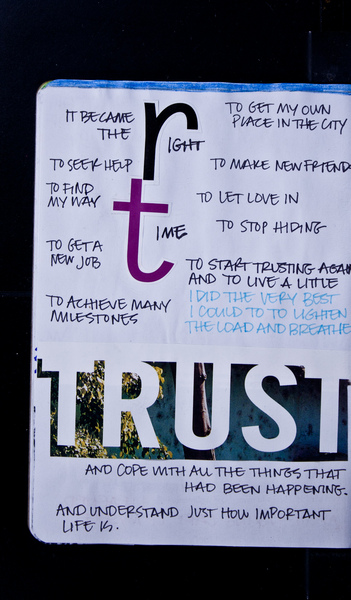 IT BECAME
THE
rIGHT
tIME
TO SEEK HELP
TO FIND
MY WAY
TO GET A
NEW JOB
TO ACHIEVE MANY
MILESTONES
TO GET MY OWN
PLACE IN THE CITY
TO MAKE NEW FRIENDS
TO LET LOVE IN
TO STOP HIDING
TO START TRUSTING AGAIN
AND TO LIVE A LITTLE
I DID THE VERY BEST
I COULD TO TO LIGHTEN
THE LOAD AND BREATHE
TRUST
AND COPE WITH ALL THE THINGS THAT
HAD BEEN HAPPENING.
AND UNDERSTAND JUST HOW IMPORTANT
LIFE IS.